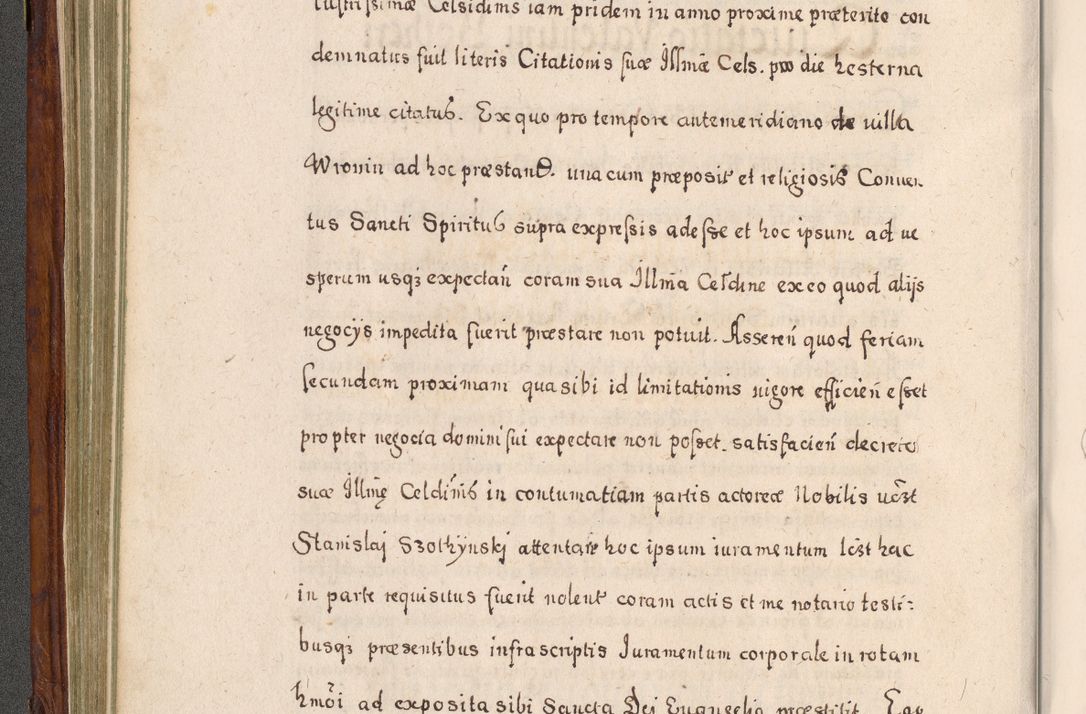 lustrissimæ Celsidinis iam pridem in anno proxime præterito con
demnatus fuit literis Citationis suæ Illmæ Cels. pro die hesterna
legitime citatus. Ex quo pro tempore antemeridiano de villa
Wronin ad hoc præstand. una cum præposit et religiosis Conven
tus Sancti Spiritus supra expressis adesse et hoc ipsum ad ve
sperum usq3 expectan̄ coram sua Illma Celdine ex eo quod alijs
negocijs impedita fuerit præstare non potuit. Asseren̄ quod feriam
secundam proximam qua sibi id limitationis vigore efficien̄ esset
propter negocia domini sui expectare non posset. satisfacien̄ decreto
suæ Illmę Celdinis in contumatiam partis actoreæ Nobilis
Stanislaj Szothÿnskj attentare hoc ipsum iuramentum hac
in parte requisitus fuerit nolent coram actis et me notario testi:
busq3 præsentibus infrascriptis Juramentum corporale in rotam
hmōi ad exposita sibi Sancta Dei Euangelia præstitit.